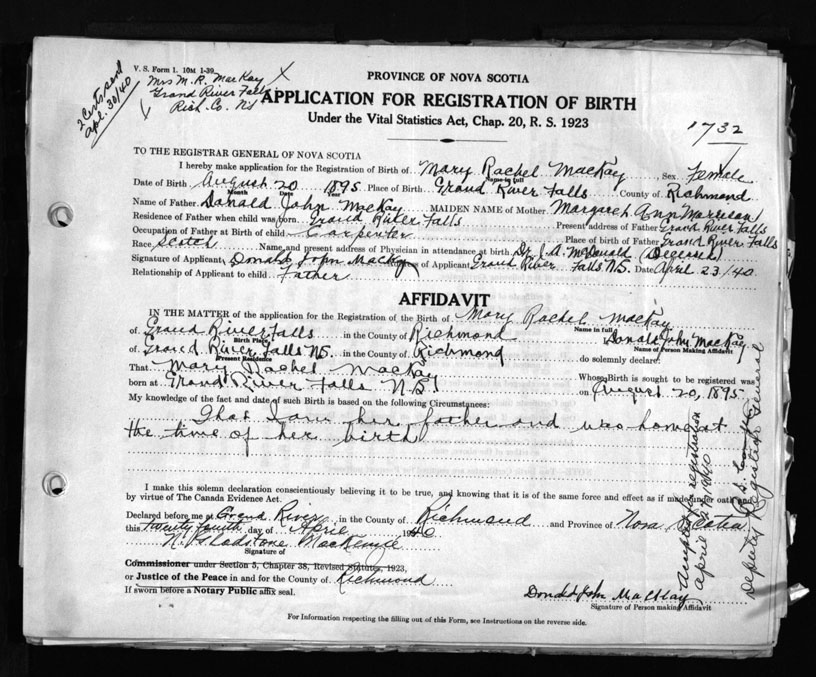 V. S. Form 1. 10M 1-39
2 Certs. sent
Apl. 30/40
Mrs M. R. MacKay
Grand River Falls
Rich. Co. NS
PROVINCE OF NOVA SCOTIA
APPLICATION FOR REGISTRATION OF BIRTH
Under the Vital Statistics Act, Chap. 20, R. S. 1923
1732
TO THE REGISTRAR GENERAL OF NOVA SCOTIA
I hereby make application for the Registration of Birth of Mary Rachel MacKay Sex Female
Name in full
Date of Birth August 20 1895 Place of Birth Grand River Falls County of Richmond
Month
Name of Father Donald John MacKay MAIDEN NAME of Mother Margaret Ann
Residence of Father when child was born Grand River Falls Present address of Father Grand River Falls
Occupation of Father at Birth of child Carpenter Place of birth of Father Grand River Falls
Race Scotch Name and present address of Physician in attendance at birth Dr. J. A. McDonald (Deceased)
Signature of Applicant Donald John MacKay Address of Applicant Grand River Falls NS. Date April 23/40
Relationship of Applicant to child Father
AFFIDAVIT
IN THE MATTER of the application for the Registration of the Birth of Mary Rachel MacKay
Name in full
of Grand River Falls in the County of Richmond I Donald John MacKay
Birth Place
Name of Person Making Affidavit
of Grand River Falls NS. in the County of Richmond do solemnly declare:
Present Residence
That Mary Rachel MacKay Whose Birth is sought to be registered was
born at Grand River Falls N.S. on August 20, 1895
My knowledge of the fact and date of such Birth is based on the following Circumstances:
That I am her father and was home at
the time of her birth
I make this solemn declaration conscientiously believing it to be true, and knowing that it is of the same force and effect as if made under oath and
by virtue of The Canada Evidence Act.
Declared before me at Grand River in the County of Richmond and Province of Nova Scotia
this twenty fourth day of April 1940
N. Gladstone MacKenzie
Signature of
Commissioner under Section 5, Chapter 38, Revised Statutes, 1923,
or Justice of the Peace in and for the County of Richmond
If sworn before a Notary Public affix seal.
Donald John MacKay
Signature of Person making Affidavit
For Information respecting the filling out of this Form, see Instructions on the reverse side.
of registration
April 27 1940
Deputy Registrar General